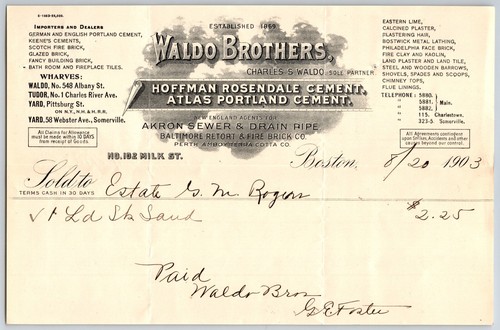 IMPORTERS AND DEALERS
GERMAN AND ENGLISH PORTLAND CEMENT,
KEENE'S CEMENTS,
SCOTCH FIRE BRICK,
GLAZED BRICK,
FANCY BUILDING BRICK,
BATH ROOM AND FIREPLACE TILES.
WHARVES:
WALDO, No. 548 Albany St.
TUDOR, No. 1 Charles River Ave.
YARD, Pittsburg St.
ON N.Y., N.H. & H.R.R.
YARD, 58 Webster Ave., Somerville.
All Claims for Allowance
must be made within 10 DAYS
from receipt of Goods.
ESTABLISHED 1869
WALDO BROTHERS,
CHARLES S. WALDO, SOLE PARTNER.
HOFFMAN ROSENDALE CEMENT,
ATLAS PORTLAND CEMENT.
NEW ENGLAND AGENTS FOR
AKRON SEWER & DRAIN PIPE
BALTIMORE RETORT & FIRE BRICK CO.
PERTH AMBOY TERRA COTTA CO.
EASTERN LIME,
CALCINED PLASTER,
PLASTERING HAIR,
BOSTWICK METAL LATHING,
PHILADELPHIA FACE BRICK,
FIRE CLAY AND KAOLIN,
LAND TILE, SAND AND GRAVEL,
STEEL AND WOODEN BARROWS,
SHOVELS, SPADES AND SCOOPS,
CHIMNEY TOPS,
FLUE LININGS.
TELEPHONE - 5880,
" 5881, Main.
" 5882,
" 115, Charlestown.
" 323-5 Somerville.
All Agreements contingent
upon Strikes, Accidents and other
causes beyond our control.
NO. 102 MILK ST.
Boston, 8/20 1903
Sold to Estate G. M. Rogers
TERMS CASH IN 30 DAYS
√ 1 Ld Sk Sand $2.25
Paid
Waldo Bros
G E Foster